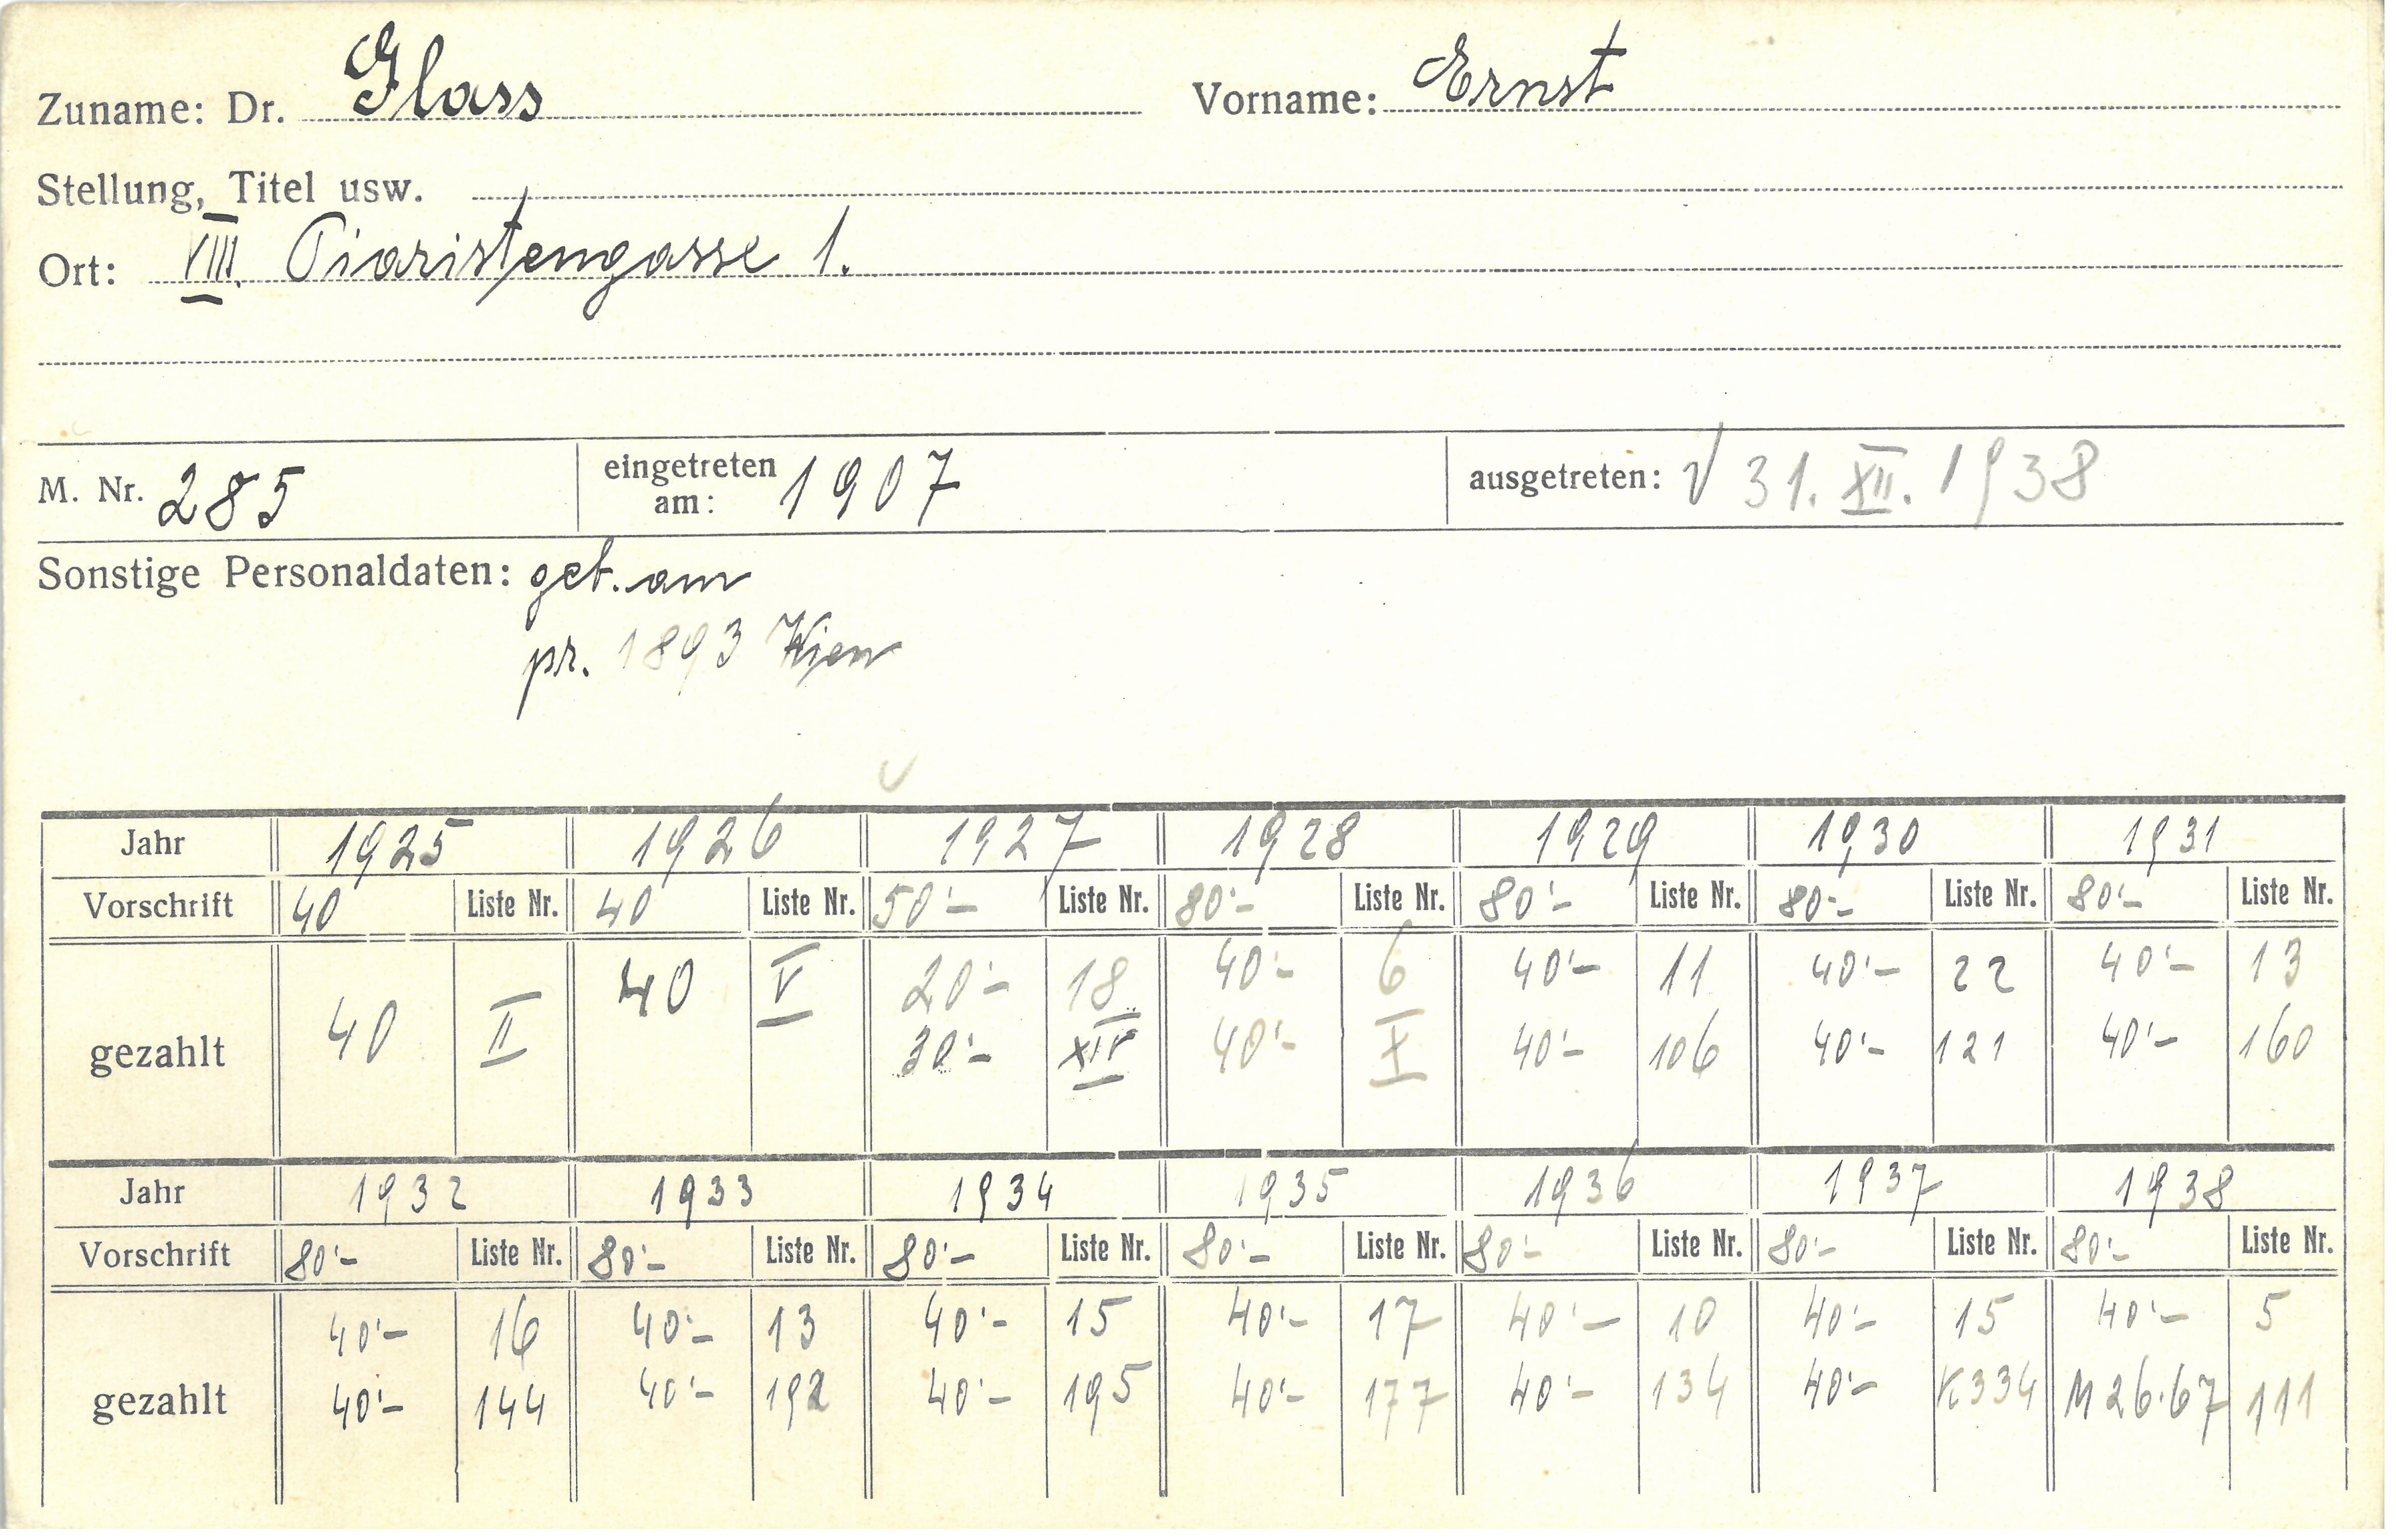 Zuname: Dr. Glass Vorname: Ernst
Stellung, Titel usw.
Ort: VIII. Piaristengasse 1.
M. Nr. 285 eingetreten am: 1907 ausgetreten: √ 31. XII. 1938
Sonstige Personaldaten: geb. am
pr. 1893 Wien
Jahr 1925 1926 1927 1928 1929 1930 1931
Vorschrift 40 Liste Nr. 40 Liste Nr. 50'- Liste Nr. 80'- Liste Nr. 80'- Liste Nr. 80'- Liste Nr. 80'- Liste Nr.
gezahlt 40 II 40 V 20'- 18 40'- 6 40'- 11 40'- 22 40'- 13
30'- XIV 40'- X 40'- 106 40'- 121 40'- 160
Jahr 1932 1933 1934 1935 1936 1937 1938
Vorschrift 80'- Liste Nr. 80'- Liste Nr. 80'- Liste Nr. 80'- Liste Nr. 80'- Liste Nr. 80'- Liste Nr. 80'- Liste Nr.
gezahlt 40'- 16 40'- 13 40'- 15 40'- 17 40'- 10 40'- 15 40'- 5
40'- 144 40'- 192 40'- 195 40'- 177 40'- 134 40'- K334 M 26.67 111